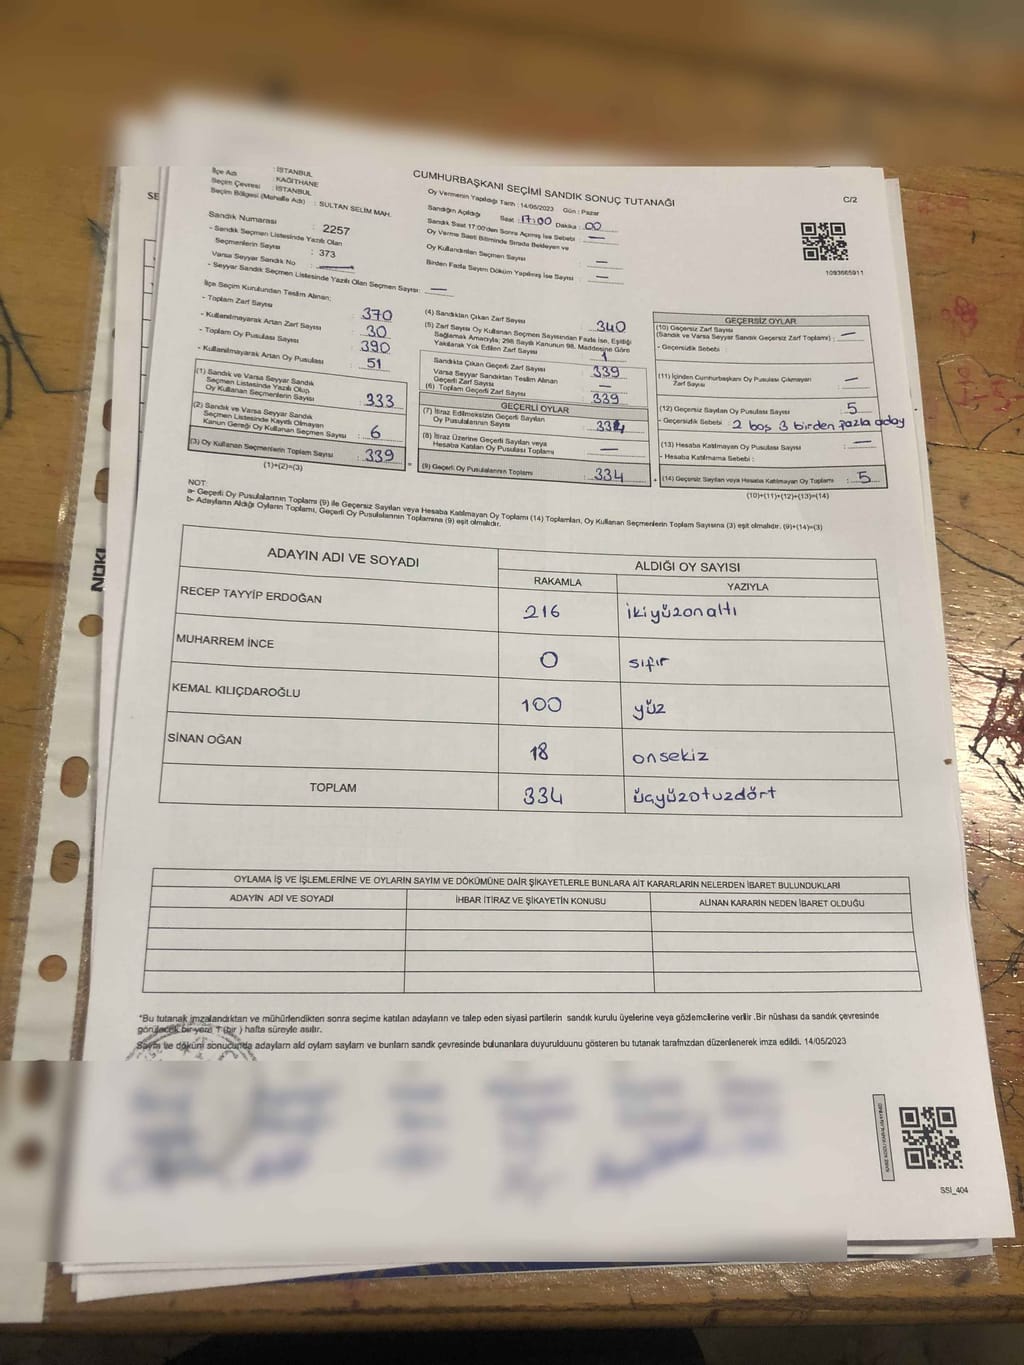 CUMHURBAŞKANI SEÇİMİ SANDIK SONUÇ TUTANAĞI
C/2
İlçe Adı : İSTANBUL
Seçim Çevresi : KAĞITHANE
Seçim Bölgesi (Mahalle Adı) : İSTANBUL
: SULTAN SELİM MAH.
Sandık Numarası : 2257
- Sandık Seçmen Listesinde Yazılı Olan
Seçmenlerin Sayısı : 373
Varsa Seyyar Sandık No : —
- Seyyar Sandık Seçmen Listesinde Yazılı Olan Seçmen Sayısı: —
Oy Vermenin Yapıldığı Tarih : 14/05/2023 Gün : Pazar
Sandığın Açıldığı Saat : 17:00 Dakika : 00
Sandık Saat 17:00'den Sonra Açılmış İse Sebebi : —
Oy Verme Saati Bitiminde Sırada Bekleyen ve
Oy Kullandırılan Seçmen Sayısı : —
Birden Fazla Sayım Döküm Yapılmış İse Sayısı : —
1093665911
İlçe Seçim Kurulundan Teslim Alınan;
- Toplam Zarf Sayısı : 370
- Kullanılmayarak Artan Zarf Sayısı : 30
- Toplam Oy Pusulası Sayısı : 390
- Kullanılmayarak Artan Oy Pusulası : 51
(1) Sandık ve Varsa Seyyar Sandık
Seçmen Listesinde Yazılı Olup
Oy Kullanan Seçmenlerin Sayısı : 333
(2) Sandık ve Varsa Seyyar Sandık
Seçmen Listesinde Kayıtlı Olmayan
Kanun Gereği Oy Kullanan Seçmen Sayısı : 6
(3) Oy Kullanan Seçmenlerin Toplam Sayısı : 339
(1)+(2)=(3)
(4) Sandıktan Çıkan Zarf Sayısı : 340
(5) Zarf Sayısı Oy Kullanan Seçmen Sayısından Fazla İse, Eşitliği
Sağlamak Amacıyla; 298 Sayılı Kanunun 98. Maddesine Göre
Yakılarak Yok Edilen Zarf Sayısı : 1
Sandıkta Çıkan Geçerli Zarf Sayısı : 339
Varsa Seyyar Sandıktan Teslim Alınan
Geçerli Zarf Sayısı : —
(6) Toplam Geçerli Zarf Sayısı : 339
GEÇERLİ OYLAR
(7) İtiraz Edilmeksizin Geçerli Sayılan
Oy Pusulalarının Sayısı : 334
(8) İtiraz Üzerine Geçerli Sayılan veya
Hesaba Katılan Oy Pusulası Toplamı : —
= (9) Geçerli Oy Pusulalarının Toplamı : 334
GEÇERSİZ OYLAR
(10) Geçersiz Zarf Sayısı
(Sandık ve Varsa Seyyar Sandık Geçersiz Zarf Toplamı) : —
- Geçersizlik Sebebi :
(11) İçinden Cumhurbaşkanı Oy Pusulası Çıkmayan
Zarf Sayısı : —
(12) Geçersiz Sayılan Oy Pusulası Sayısı : 5
- Geçersizlik Sebebi : 2 boş 3 birden fazla aday
(13) Hesaba Katılmayan Oy Pusulası Sayısı : —
- Hesaba Katılmama Sebebi :
+ (14) Geçersiz Sayılan veya Hesaba Katılmayan Oy Toplamı : 5
(10)+(11)+(12)+(13)=(14)
NOT:
a- Geçerli Oy Pusulalarının Toplamı (9) ile Geçersiz Sayılan veya Hesaba Katılmayan Oy Toplamı (14) Toplamları, Oy Kullanan Seçmenlerin Toplam Sayısına (3) eşit olmalıdır. (9)+(14)=(3)
b- Adayların Aldığı Oyların Toplamı, Geçerli Oy Pusulalarının Toplamına (9) eşit olmalıdır.
ADAYIN ADI VE SOYADI ALDIĞI OY SAYISI
RAKAMLA YAZIYLA
RECEP TAYYİP ERDOĞAN 216 ikiyüzonaltı
MUHARREM İNCE 0 sıfır
KEMAL KILIÇDAROĞLU 100 yüz
SİNAN OĞAN 18 onsekiz
TOPLAM 334 üçyüzotuzdört
OYLAMA İŞ VE İŞLEMLERİNE VE OYLARIN SAYIM VE DÖKÜMÜNE DAİR ŞİKAYETLERLE BUNLARA AİT KARARLARIN NELERDEN İBARET BULUNDUKLARI
ADAYIN ADI VE SOYADI İHBAR İTİRAZ VE ŞİKAYETİN KONUSU ALINAN KARARIN NEDEN İBARET OLDUĞU
*Bu tutanak imzalandıktan ve mühürlendikten sonra seçime katılan adayların ve talep eden siyasi partilerin sandık kurulu üyelerine veya gözlemcilerine verilir .Bir nüshası da sandık çevresinde
görülecek bir yere 1 (bir ) hafta süreyle asılır.
Sayım ve döküm sonucunda adayların ald oyların sayları ve bunların sandk çevresinde bulunanlara duyurulduunu gösteren bu tutanak tarafmzdan düzenlenerek imza edildi. 14/05/2023
SSI_404
NOKI
SE